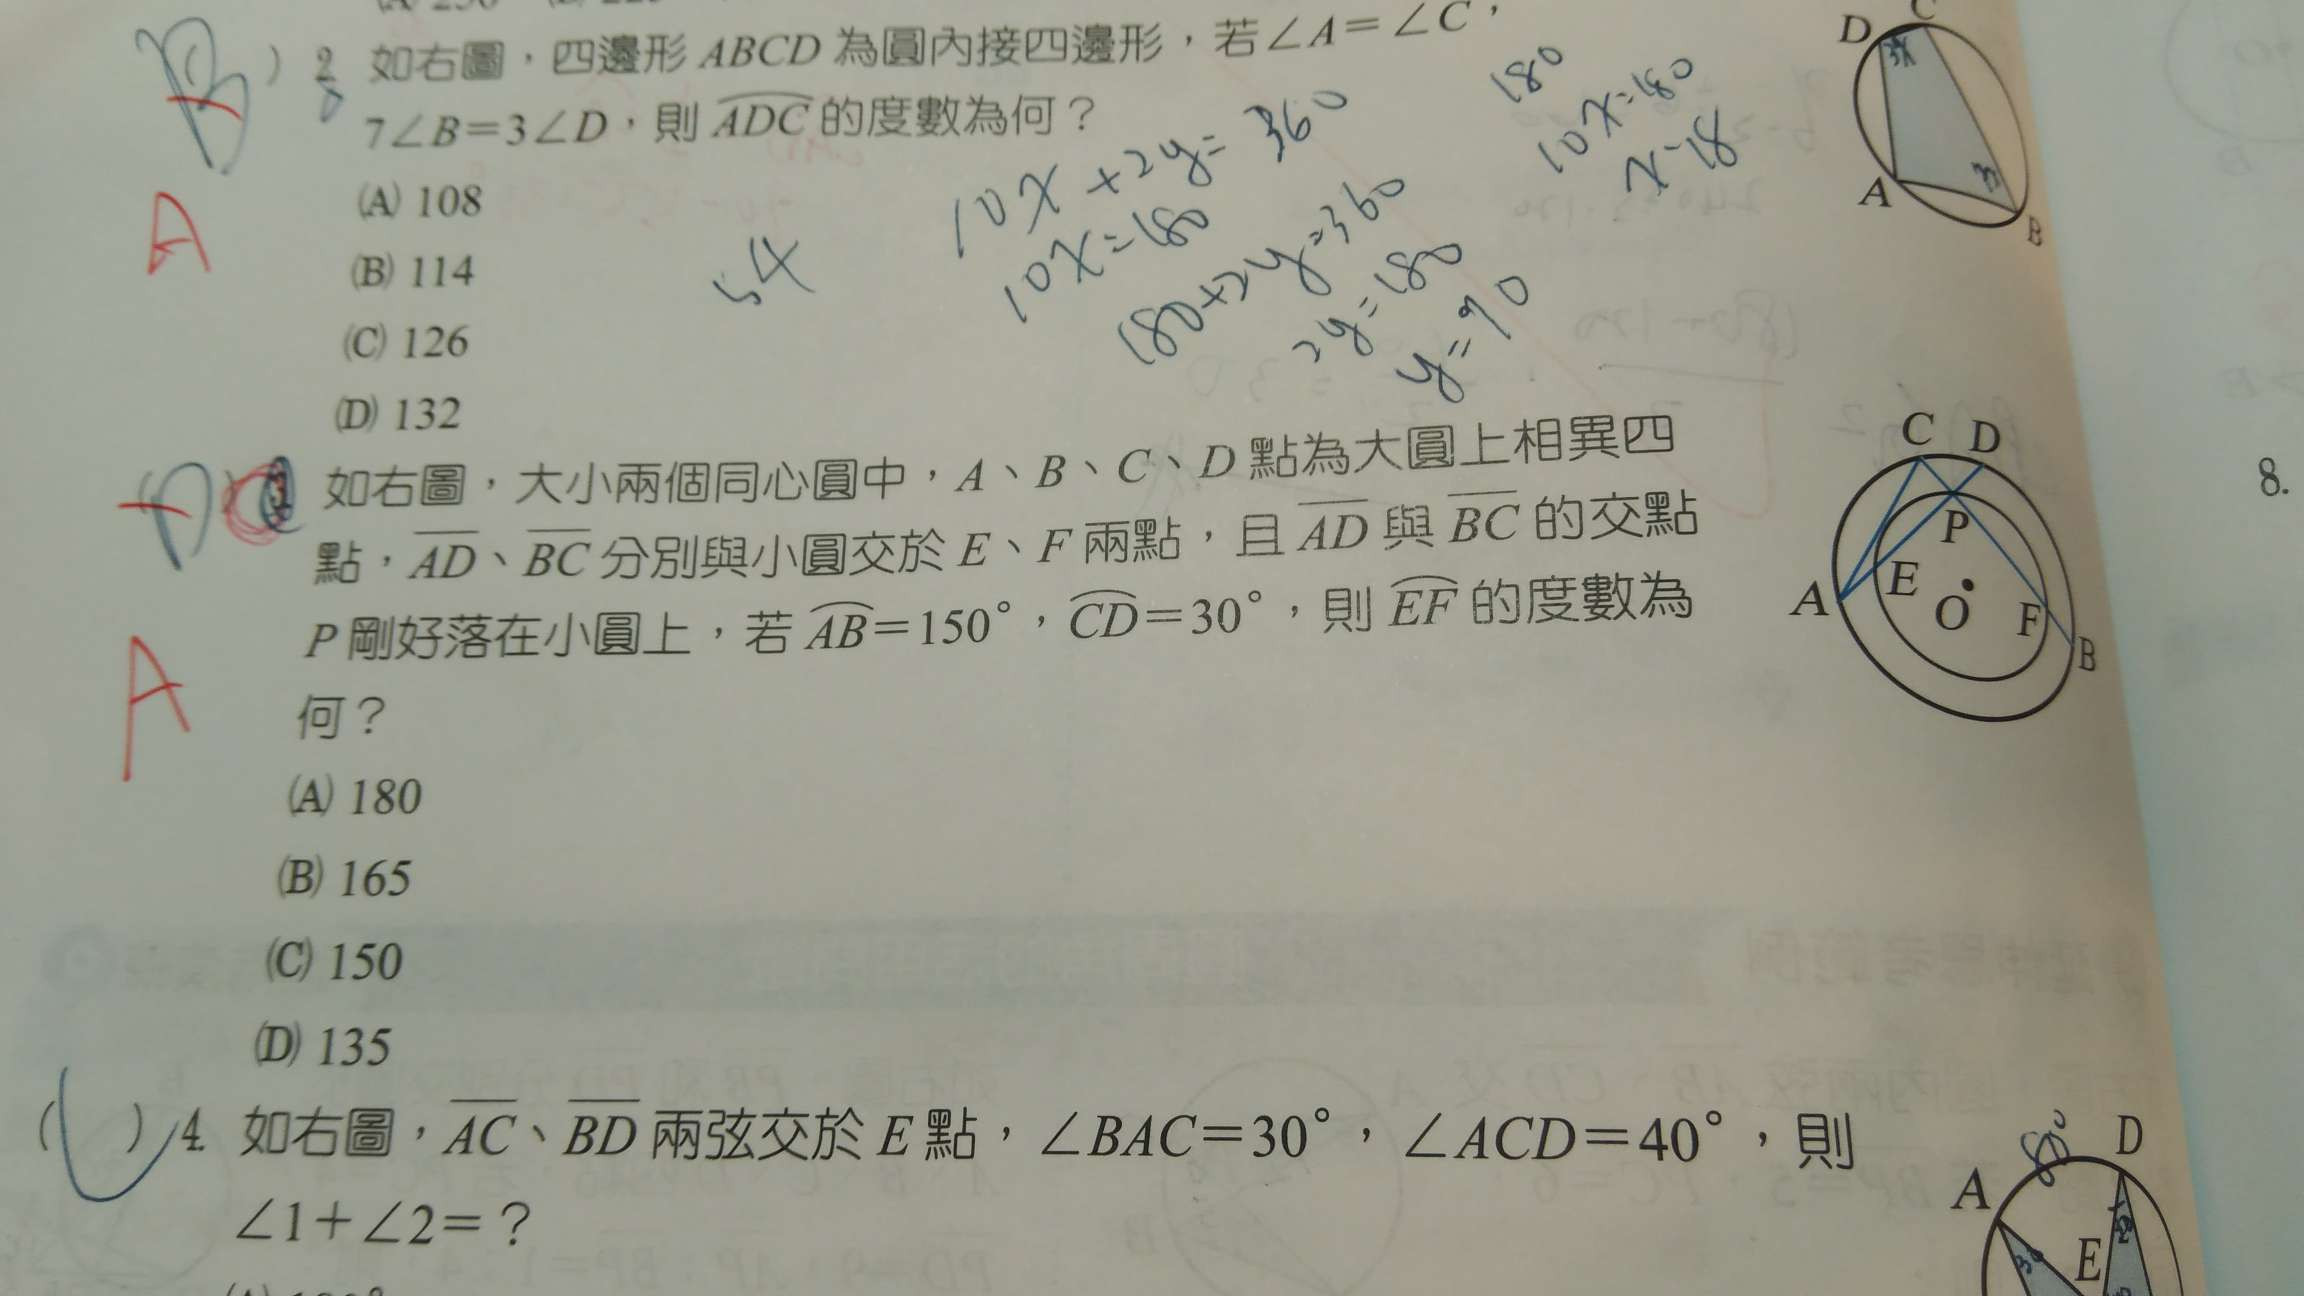 B ) 2. 如右圖，四邊形 ABCD 為圓內接四邊形，若∠A=∠C，
7∠B=3∠D，則 ADC 的度數為何？
A
(A) 108
(B) 114
(C) 126
(D) 132
54
10x+2y=360
10x=180
180+2y=360
2y=180
y=90
180
10x=180
x=18
D C
3x
A
B
( ) 3. 如右圖，大小兩個同心圓中，A、B、C、D 點為大圓上相異四
點，AD、BC 分別與小圓交於 E、F 兩點，且 AD 與 BC 的交點
P 剛好落在小圓上，若 AB=150°，CD=30°，則 EF 的度數為
何？
A
(A) 180
(B) 165
(C) 150
(D) 135
C D
P
A E O F B
8.
( ) 4. 如右圖，AC、BD 兩弦交於 E 點，∠BAC=30°，∠ACD=40°，則
∠1+∠2=？
80
D
A
2
30
E